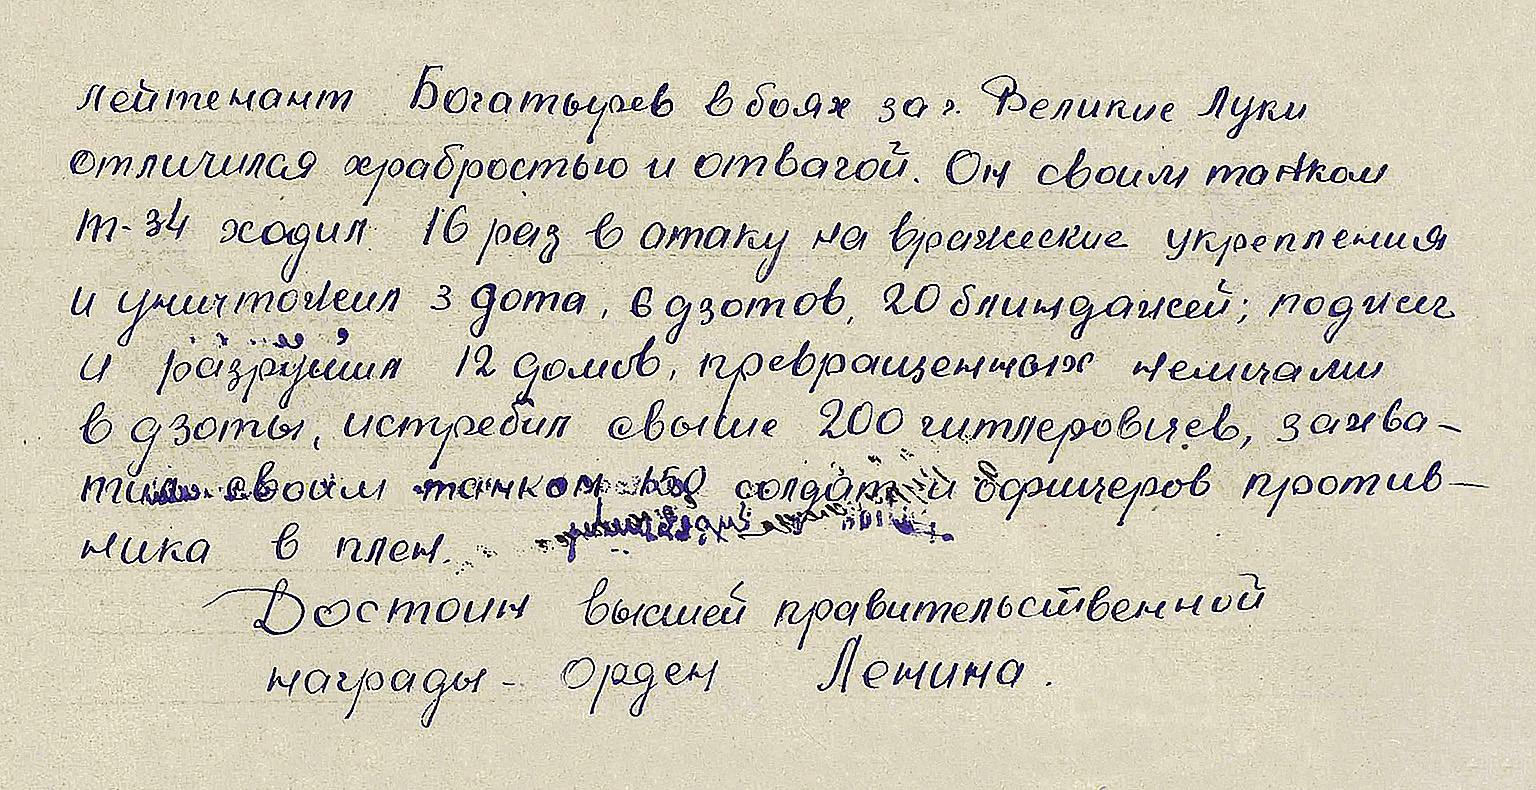 лейтенант Богатырев в боях за г. Великие Луки
отличился храбростью и отвагой. Он своим танком
Т-34 ходил 16 раз в атаку на вражеские укрепления
и уничтожил 3 дота, 6 дзотов, 20 блиндажей; поджег
и разрушил 12 домов, превращенных немцами
в дзоты, истребил свыше 200 гитлеровцев, захва-
тил своим танком 150 солдат и офицеров против-
ника в плен.
Достоин высшей правительственной
награды - Орден Ленина.